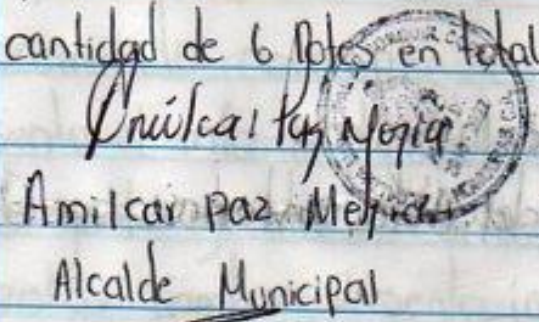 cantidad de 6 Notes en total
Amilcar Paz Mejia
Amilcar Paz Mejia
Alcalde Municipal